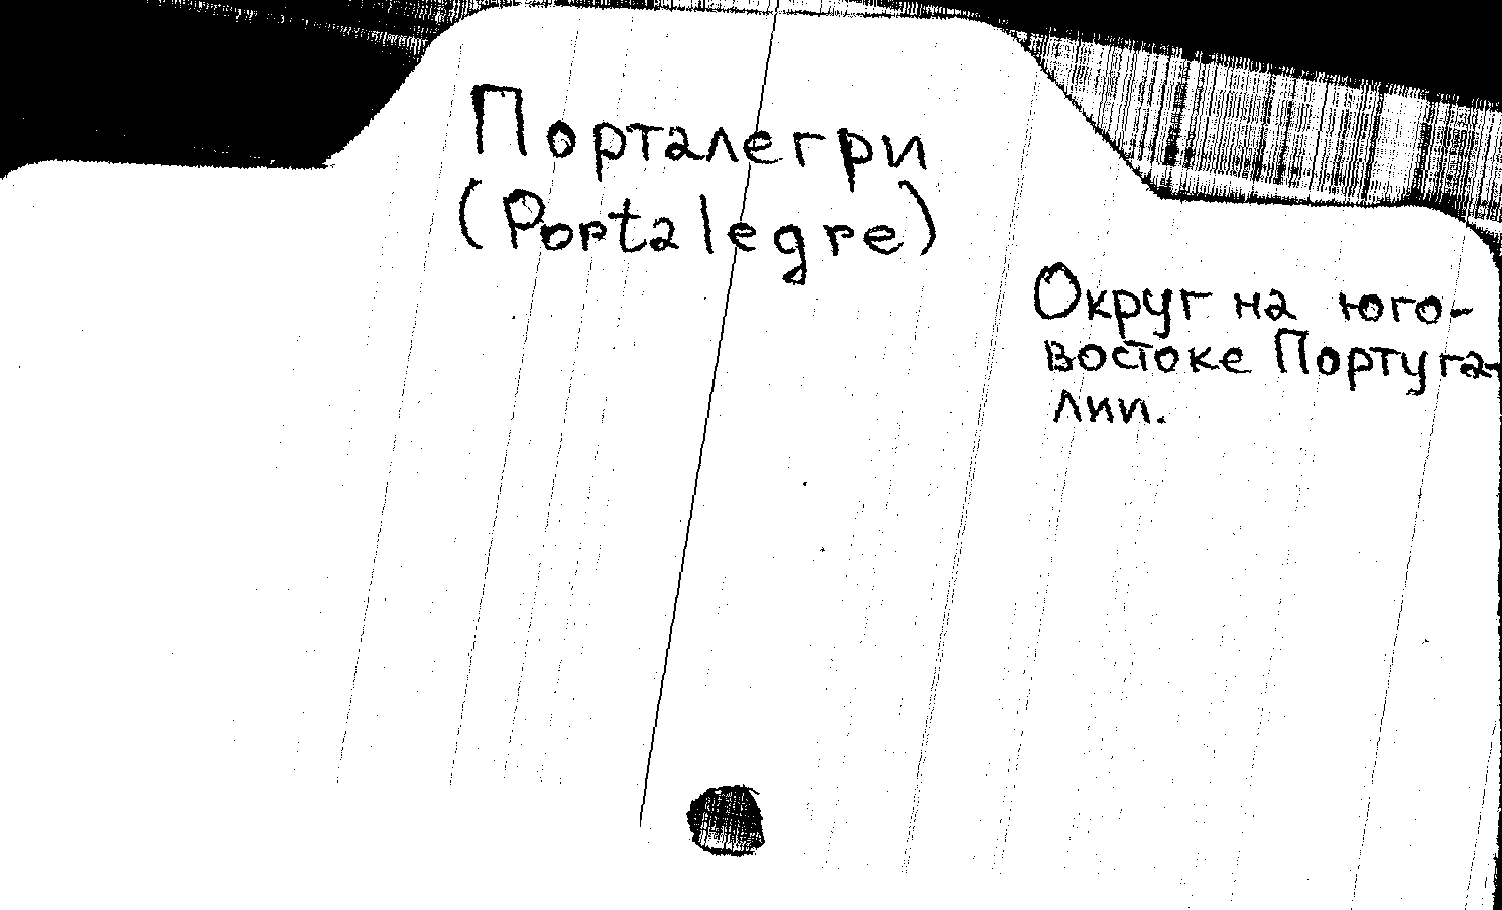 Порталегри
(Portalegre)
Округ на юго-
востоке Португа-
лии.